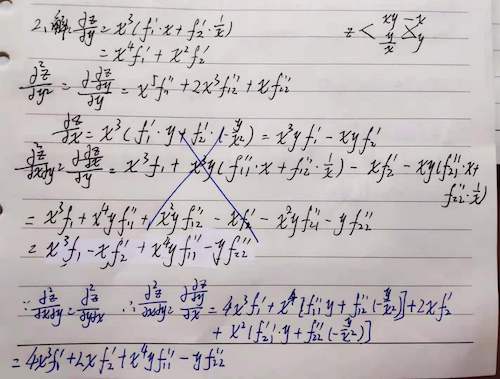 2、解 ∂z/∂y = x³(f₁'·x + f₂'·1/x)
= x⁴f₁' + x²f₂'
z < xy y/x > x y
∂²z/∂y² = ∂ ∂z/∂y / ∂y = x⁵f₁₁'' + 2x³f₁₂'' + xf₂₂''
∂z/∂x = x³(f₁'·y + f₂'·(-y/x²)) = x³yf₁' - xyf₂'
∂²z/∂x∂y = ∂ ∂z/∂x / ∂y = x³f₁ + x³y(f₁₁''·x + f₁₂''·1/x) - xf₂' - xy(f₂₁''·x +
f₂₂''·1/x)
= x³f₁ + x⁴yf₁₁'' + x²yf₁₂'' - xf₂' - x²yf₂₁'' - yf₂₂''
= x³f₁ - xf₂' + x⁴yf₁₁'' - yf₂₂''
∵ ∂²z/∂x∂y = ∂²z/∂y∂x ∴ ∂²z/∂x∂y = ∂ ∂z/∂y / ∂x = 4x³f₁' + x⁴[f₁₁''y + f₁₂''(-y/x²)] + 2xf₂'
+ x²(f₂₁''·y + f₂₂''(-y/x²)]
= 4x³f₁' + 2xf₂' + x⁴yf₁₁'' - yf₂₂''